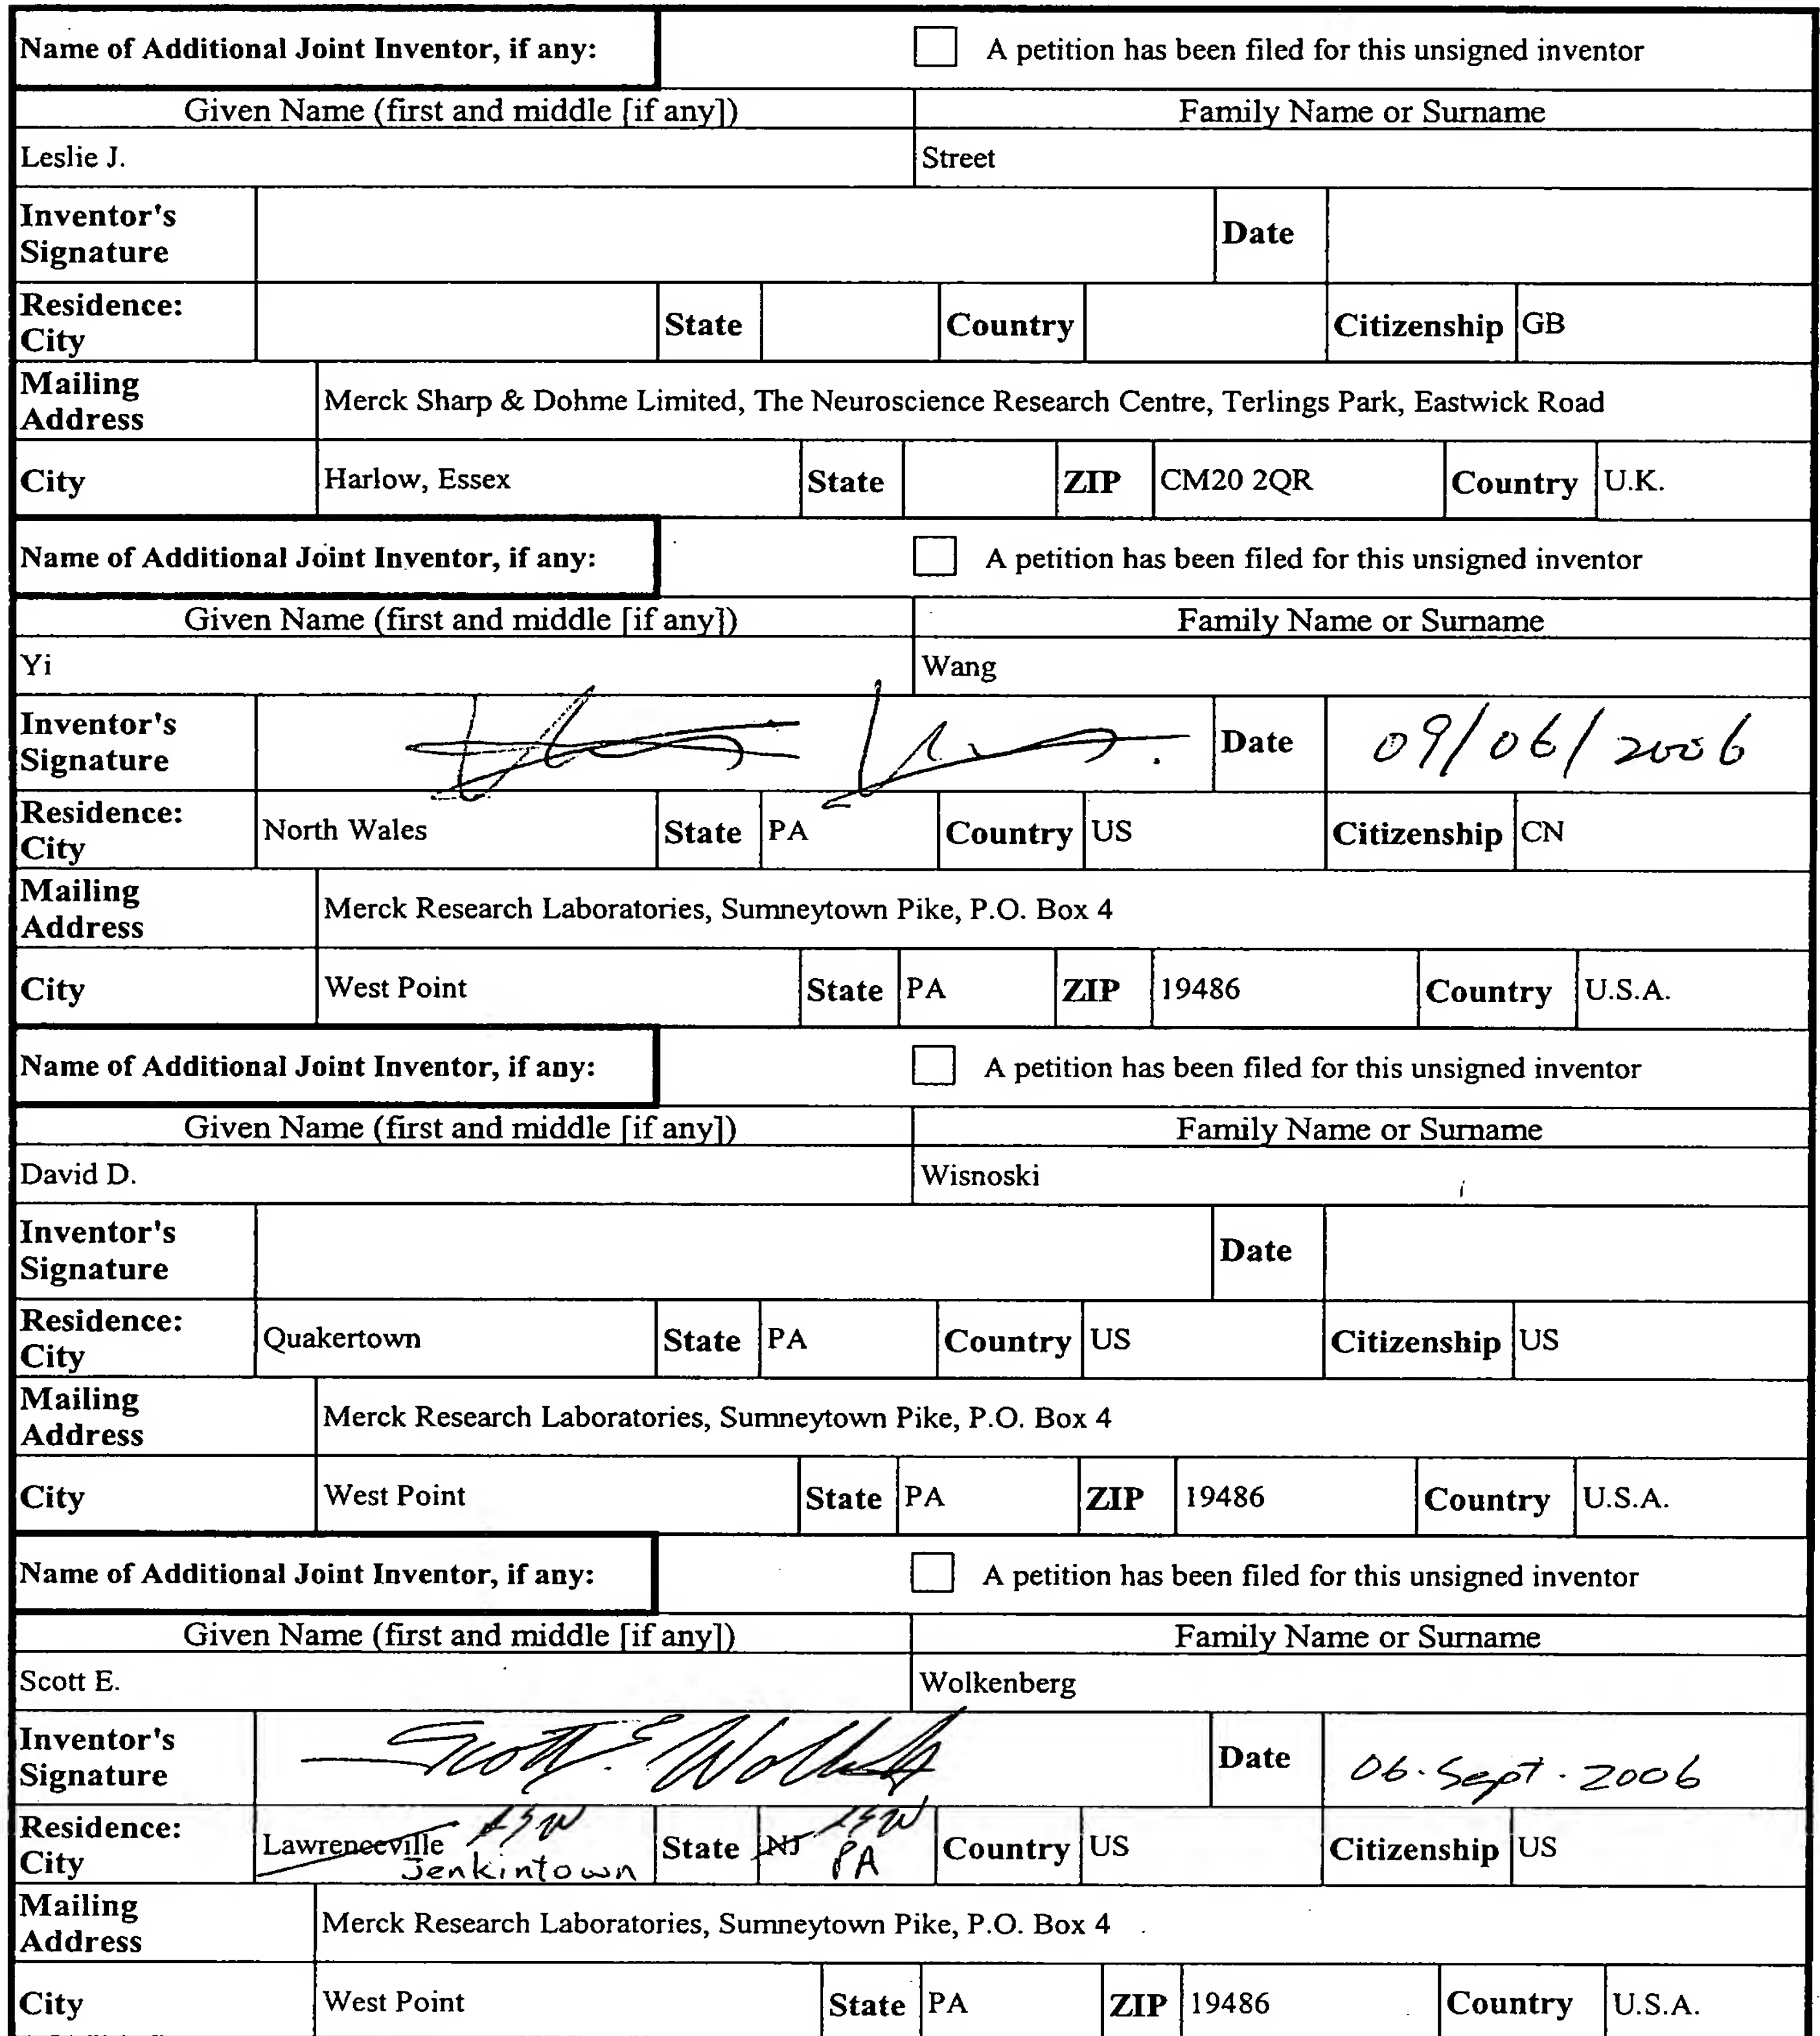 Name of Additional Joint Inventor, if any: A petition has been filed for this unsigned inventor
Given Name (first and middle [if any]) Family Name or Surname
Leslie J. Street
Inventor's Signature Date
Residence: City State Country Citizenship GB
Mailing Address Merck Sharp & Dohme Limited, The Neuroscience Research Centre, Terlings Park, Eastwick Road
City Harlow, Essex State ZIP CM20 2QR Country U.K.
Name of Additional Joint Inventor, if any: A petition has been filed for this unsigned inventor
Given Name (first and middle [if any]) Family Name or Surname
Yi Wang
Inventor's Signature Date 09/06/2006
Residence: City North Wales State PA Country US Citizenship CN
Mailing Address Merck Research Laboratories, Sumneytown Pike, P.O. Box 4
City West Point State PA ZIP 19486 Country U.S.A.
Name of Additional Joint Inventor, if any: A petition has been filed for this unsigned inventor
Given Name (first and middle [if any]) Family Name or Surname
David D. Wisnoski
Inventor's Signature Date
Residence: City Quakertown State PA Country US Citizenship US
Mailing Address Merck Research Laboratories, Sumneytown Pike, P.O. Box 4
City West Point State PA ZIP 19486 Country U.S.A.
Name of Additional Joint Inventor, if any: A petition has been filed for this unsigned inventor
Given Name (first and middle [if any]) Family Name or Surname
Scott E. Wolkenberg
Inventor's Signature Scott E. Date 06. Sept. 2006
Residence: City Lawrenceville Jenkintown State NJ PA Country US Citizenship US
Mailing Address Merck Research Laboratories, Sumneytown Pike, P.O. Box 4
City West Point State PA ZIP 19486 Country U.S.A.